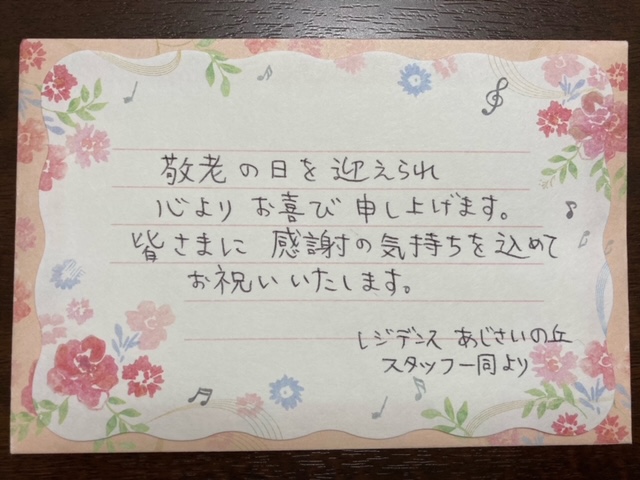 敬老の日を迎えられ
心よりお喜び申し上げます。
皆さまに感謝の気持ちを込めて
お祝いいたします。
レジデンス あじさいの丘
スタッフ一同より